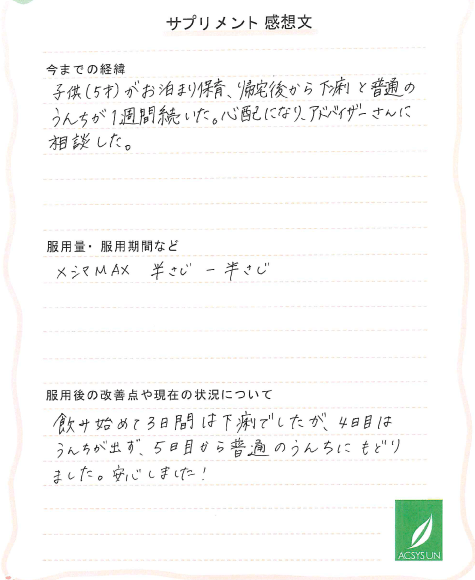 サプリメント 感想文
今までの経緯
子供(5才)がお泊まり保育、帰宅後から下痢と普通の
うんちが1週間続いた。心配になり、アドバイザーさんに
相談した。
服用量・服用期間など
メシマMAX 半さじ ー 半さじ
服用後の改善点や現在の状況について
飲み始めて3日間は下痢でしたが、4日目は
うんちが出ず、5日目から普通のうんちにもどり
ました。安心しました!
ACSYSUN